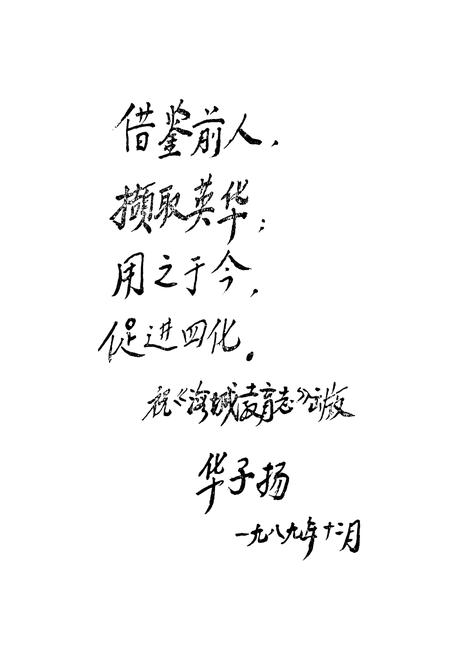 借鉴前人,
撷取英华;
用之于今,
促进四化。
祝《海城教育志》出版
华子扬
一九八九年十二月